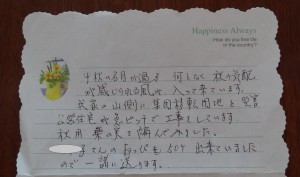 Happiness Always
How do you find life
in the country?
中秋の名月が過ぎ 何となく秋の気配
が感じられ台風が入って来ています。
我家の山側に集団移転団地と災害
公営住宅が急ピッチで工事をしています
秋用 栗の実を んでみました。
さんの も 出来ていました
ので一諸に送ります。